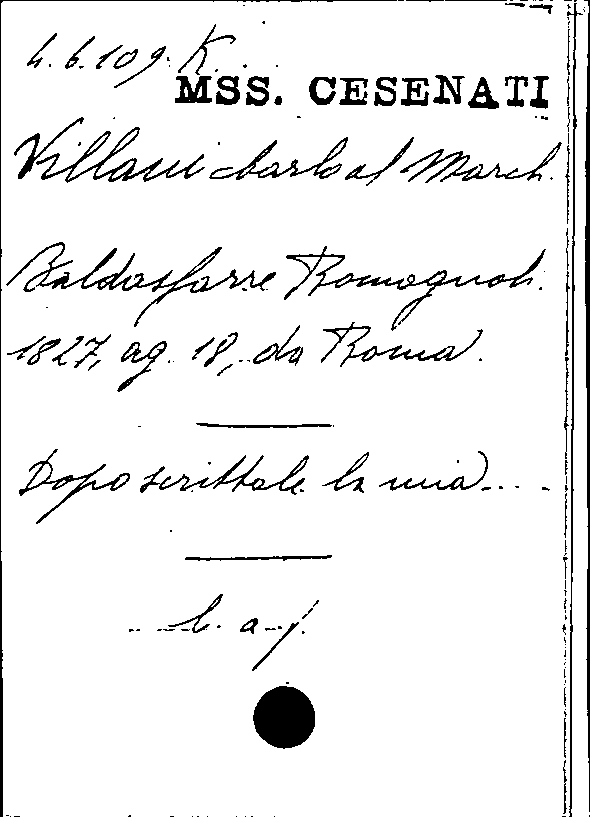 4.6.109. K.
MSS. CESENATI
Villani Carlo al March.
Baldassarre Romagnoli.
1827, ag. 18, da Roma.
Dopo scrittale la mia....
l. a f.